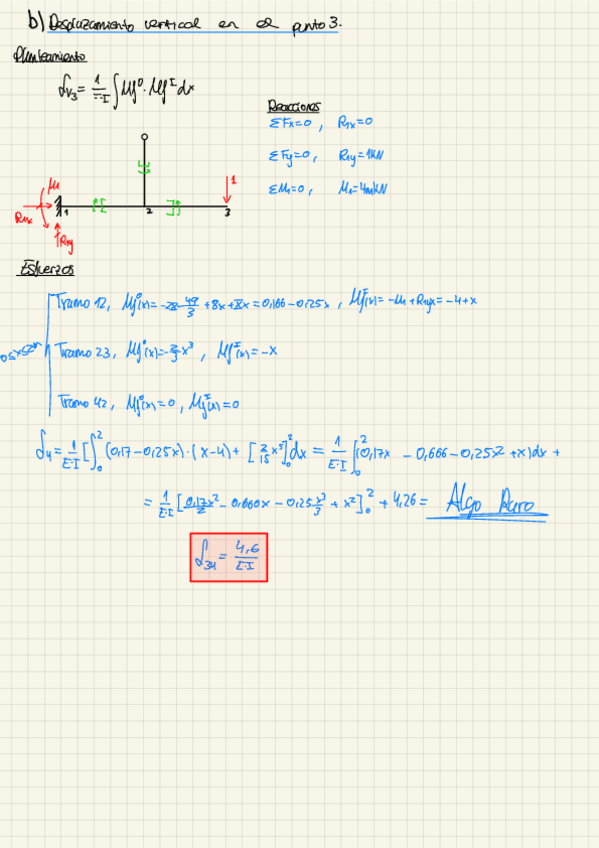 b) Desplazamiento vertical en el punto 3.
Planteamiento
δv3 = 1/E·I ∫ Mf⁰ · Mf^I dx
Reacciones
ΣFx=0 , R1x=0
ΣFy=0 , R1y=1kN
ΣM1=0 , M1=4mkN
M1
R1x
R1y
1
2
3
1
Esfuerzos
Tramo 12, + 8x + = 0,166 - 0,25x , Mf^I(x) = -M1 + R1yx = -4+x
Tramo 23, Mf⁰(x) = -2/3 x³ , Mf^I(x) = -x
Tramo 42, Mf⁰(x) = 0 , Mf^I(x) = 0
= 1/E·I [∫₀² (0,17 - 0,25x)·(x-4) + [2/15 x⁵]₀² dx = 1/E·I ∫₀² (0,17x - 0,666 - 0,25x² + x)dx +
= 1/E·I [0,17x²/2 - 0,660x - 0,25 x³/3 + x²]₀² + 4,26 = Algo Raro
= 4,6/E·I